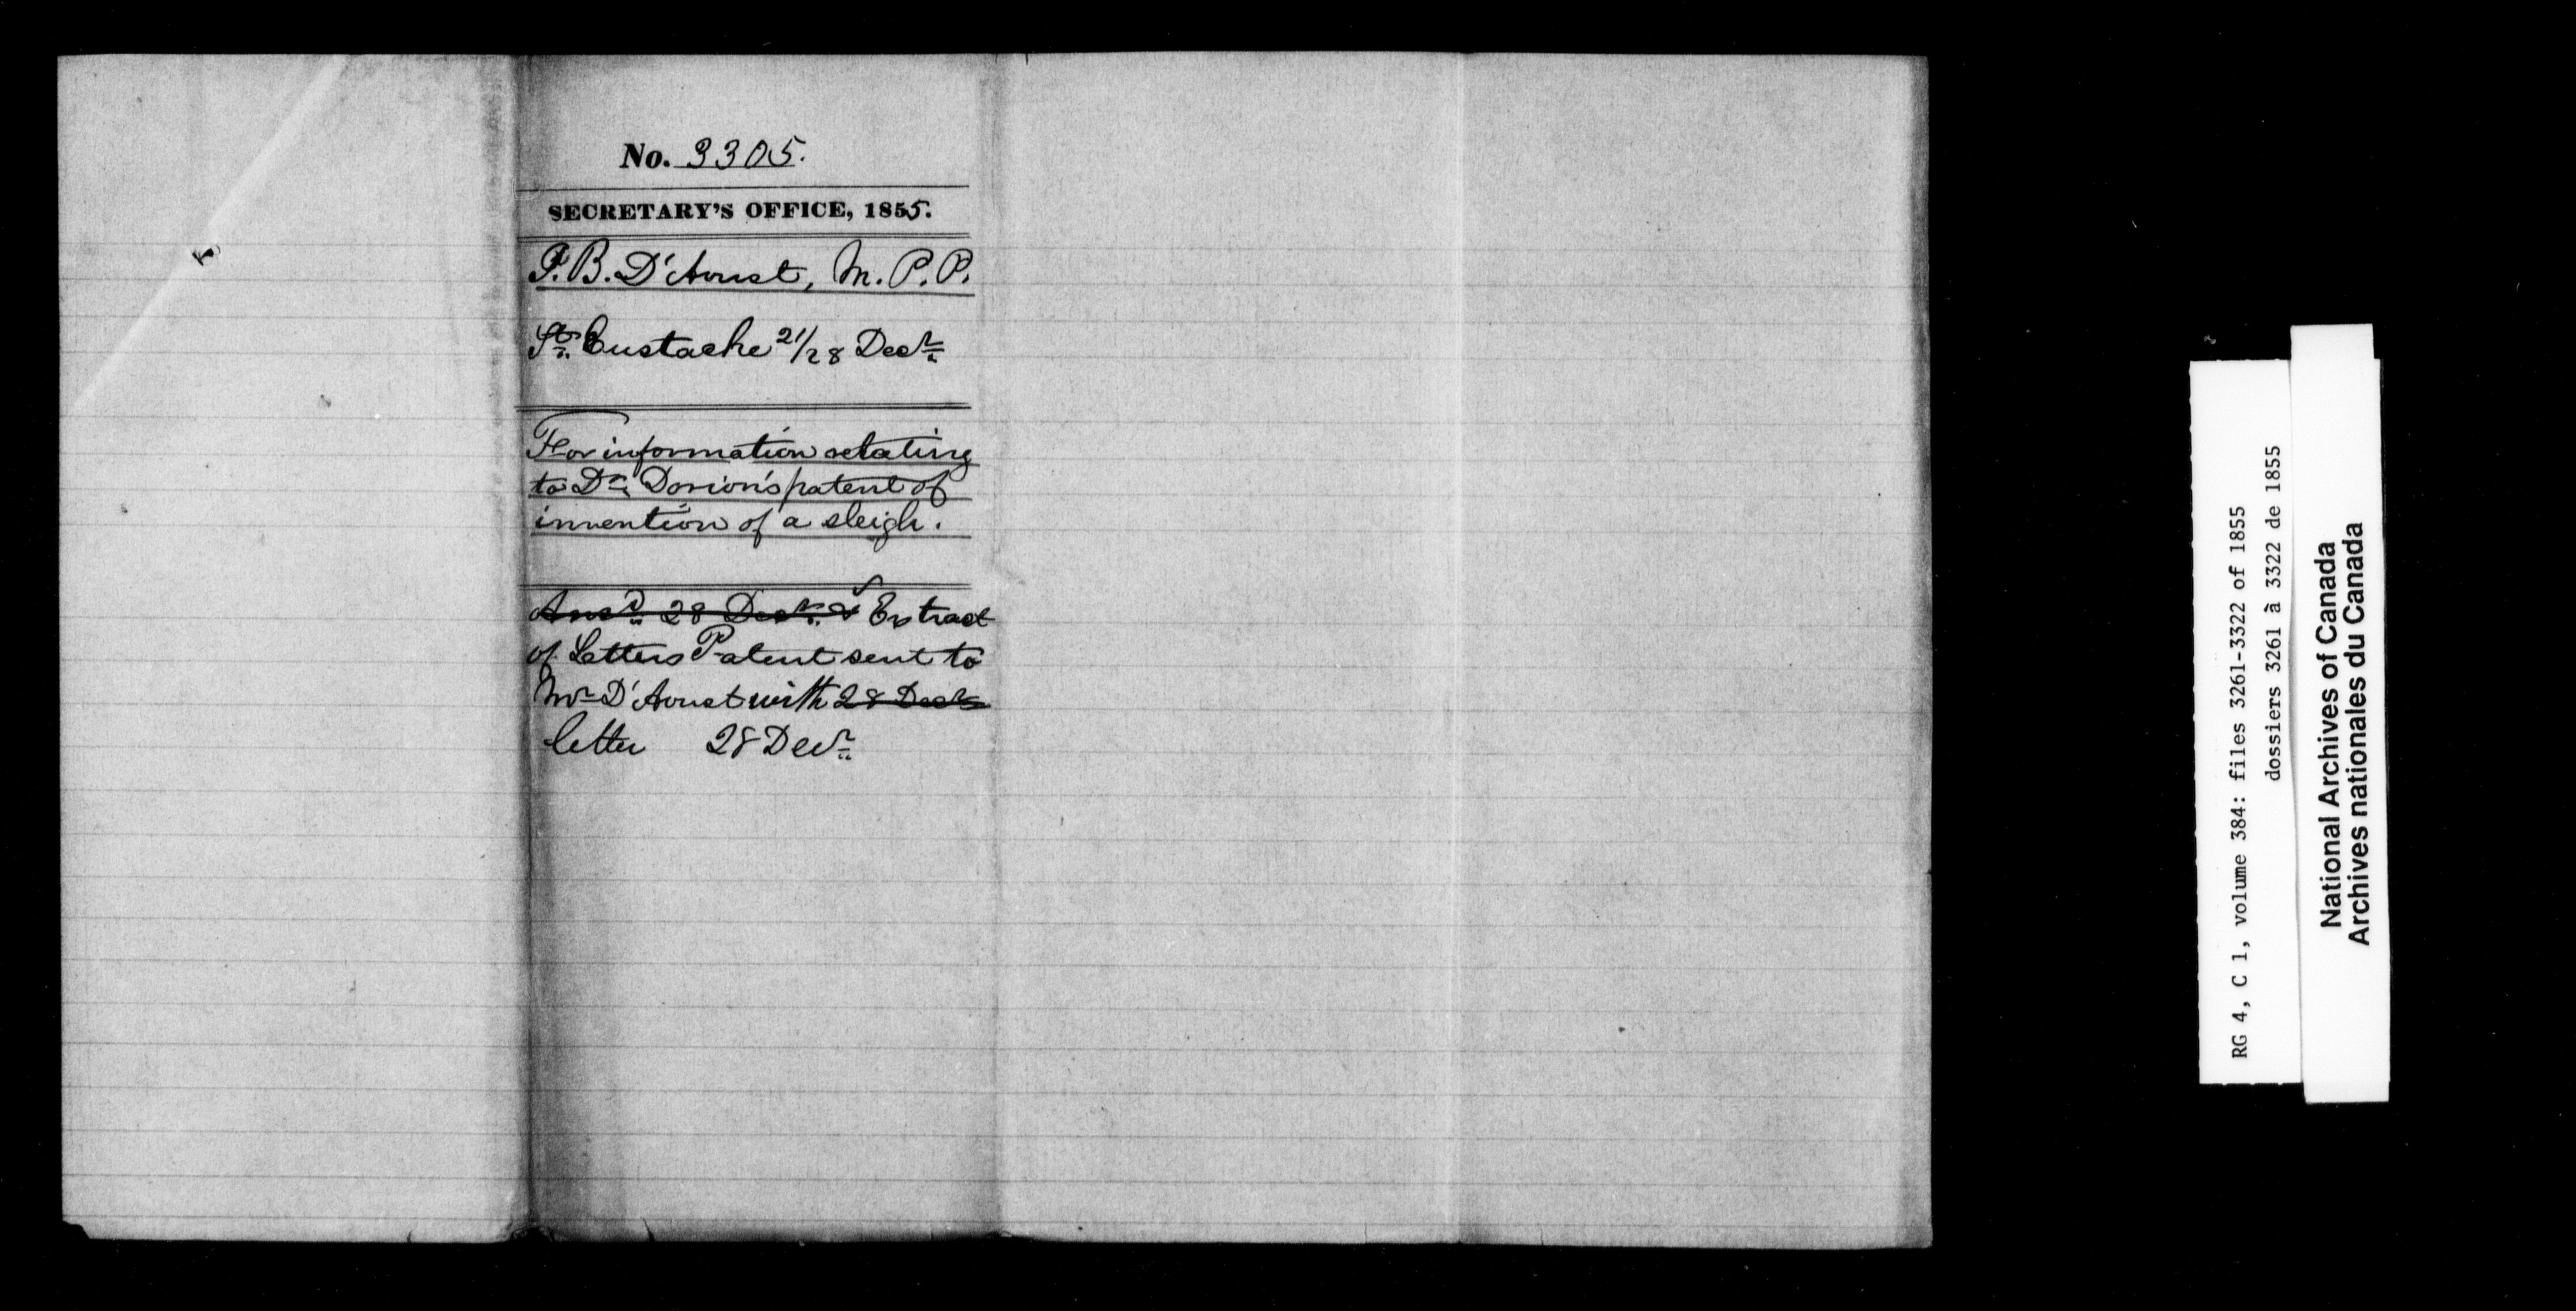 No. 3305.
SECRETARY'S OFFICE, 1855.
J. B. D'Aoust, M. P. P.
St. Eustache 21/28 Decr.
For information relating
to Dr. Dorion's patent of
invention of a sleigh.
Ansd. 28 Decr. & Extract
of Letters Patent sent to
Mr D'Aoust with 28 Decr
letter 28 Decr.
RG 4, C 1, volume 384: files 3261-3322 of 1855
dossiers 3261 à 3322 de 1855
National Archives of Canada
Archives nationales du Canada